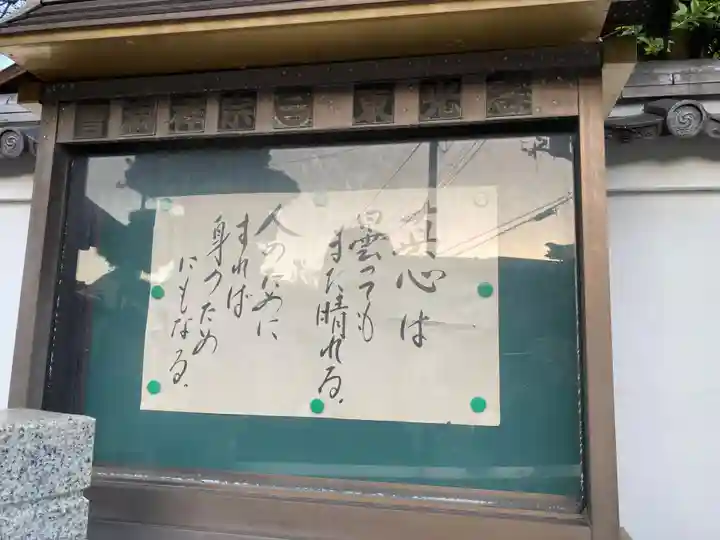 真心は
曇っても
また晴れる.
人のために
すれば
身のため
にもなる.